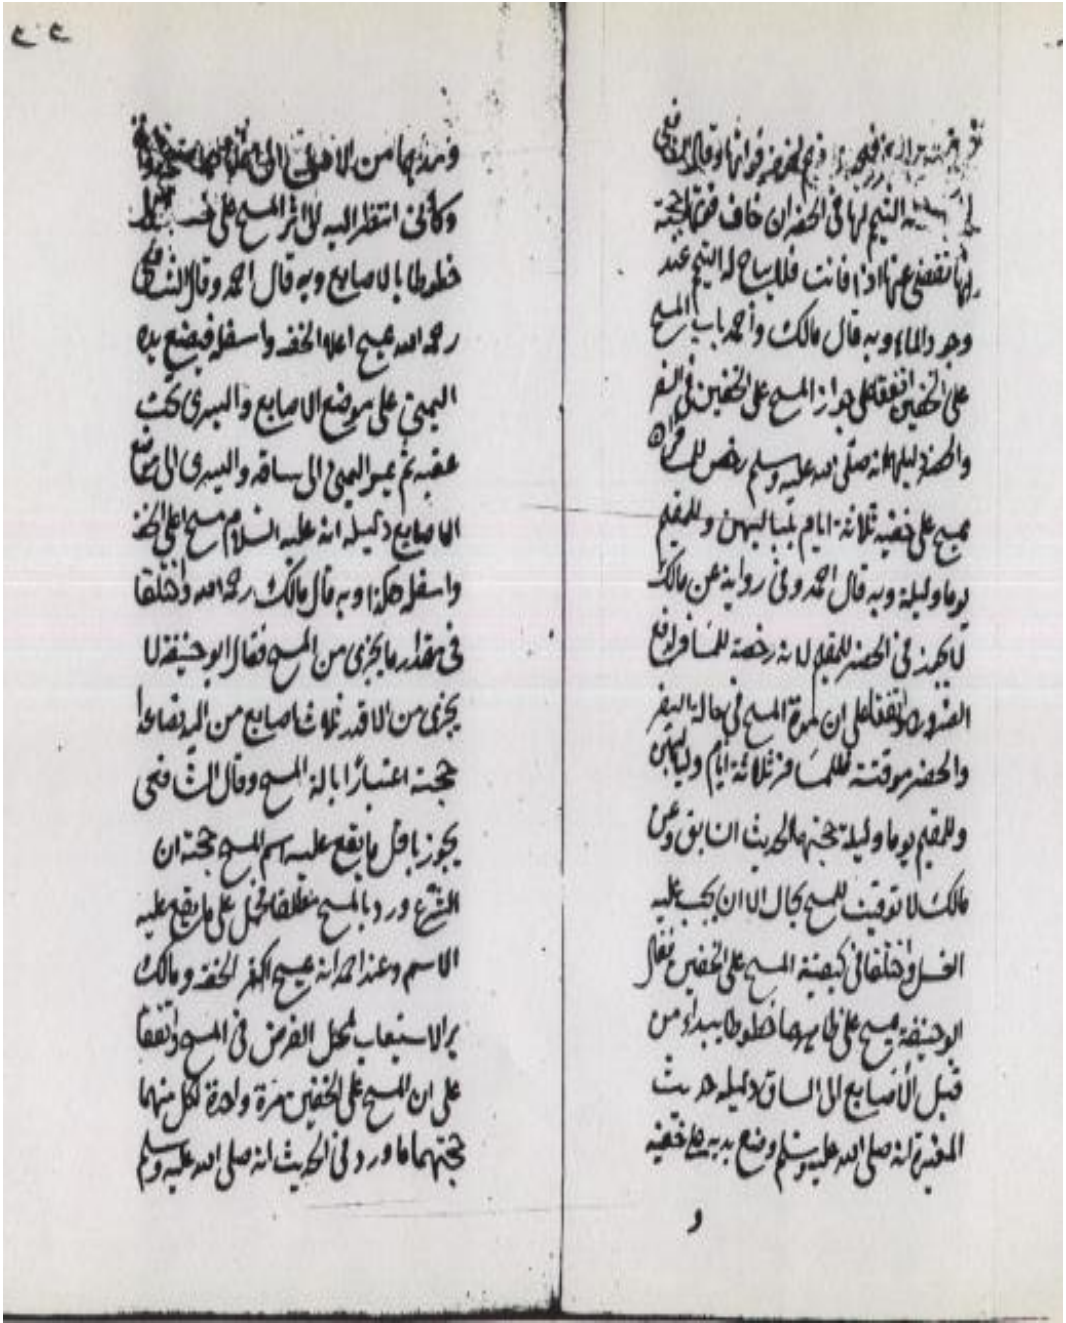 فواتها وقال الشافعي
التيمم لها في الحضر ان خاف فوتها لحجة
انها تقضى عنها اذا فاتت فلا يباح له التيمم عند
وجود الماء وبه قال مالك وأحمد باب المسح
على الخفين اتفقا على جواز المسح على الخفين في السفر
والحضر دليلهما انه صلى الله عليه وسلم رخص للمسافر ان
يمسح على خفيه ثلاثة ايام بلياليهن وللمقيم
يوما وليلة وبه قال احمد وفي رواية عن مالك
لا يجوز في الحضر للمقيم لانه رخصة للمسافر لدفع
الضرورة واتفقا على ان مدة المسح في حالة السفر
والحضر موقتة للمسافر ثلاثة أيام ولياليهن
وللمقيم يوما وليلة حجتهما الحديث السابق وعن
مالك لا توقيت للمسح بحال الا ان يجب عليه
الغسل واختلفا في كيفية المسح على الخفين فقال
ابو حنيفة يمسح على ظاهرهما خطوطا يبداء من
قبل الأصابع الى الساق دليله حديث
المغيرة انه صلى الله عليه وسلم وضع يديه على خفيه
و
ومدهما من الاصابع الى
وكأني انتظر اليه الى اثر المسح على
خطوطا بالاصابع وبه قال احمد وقال الشافعي
رحمه الله يمسح اعلا الخف واسفله فيضع يده
اليمنى على موضع الاصابع واليسرى تحت
عقبه ثم يمر اليمنى الى ساقه واليسرى الى موضع
الاصابع دليله انه عليه السلام مسح اعلى الخف
واسفله هكذا وبه قال مالك رحمه الله واختلفا
في مقدار ما يجزى من المسح فقال ابو حنيفة لا
يجزى من الا قدر ثلاث اصابع من اليد فصاعدا
حجته اعتبارًا بالة المسح وقال الشافعى
يجوز باقل ما يقع عليه اسم المسح حجته ان
الشرع ورد بالمسح مطلقا فحمل على ما يقع عليه
الاسم وعند احمد انه يمسح اكثر الخف ومالك
يرى الاستيعاب لمحل الفرض في المسح واتفقا
على ان المسح على الخفين مرة واحدة لكل منهما
حجتهما ما ورد في الحديث انه صلى الله عليه وسلم